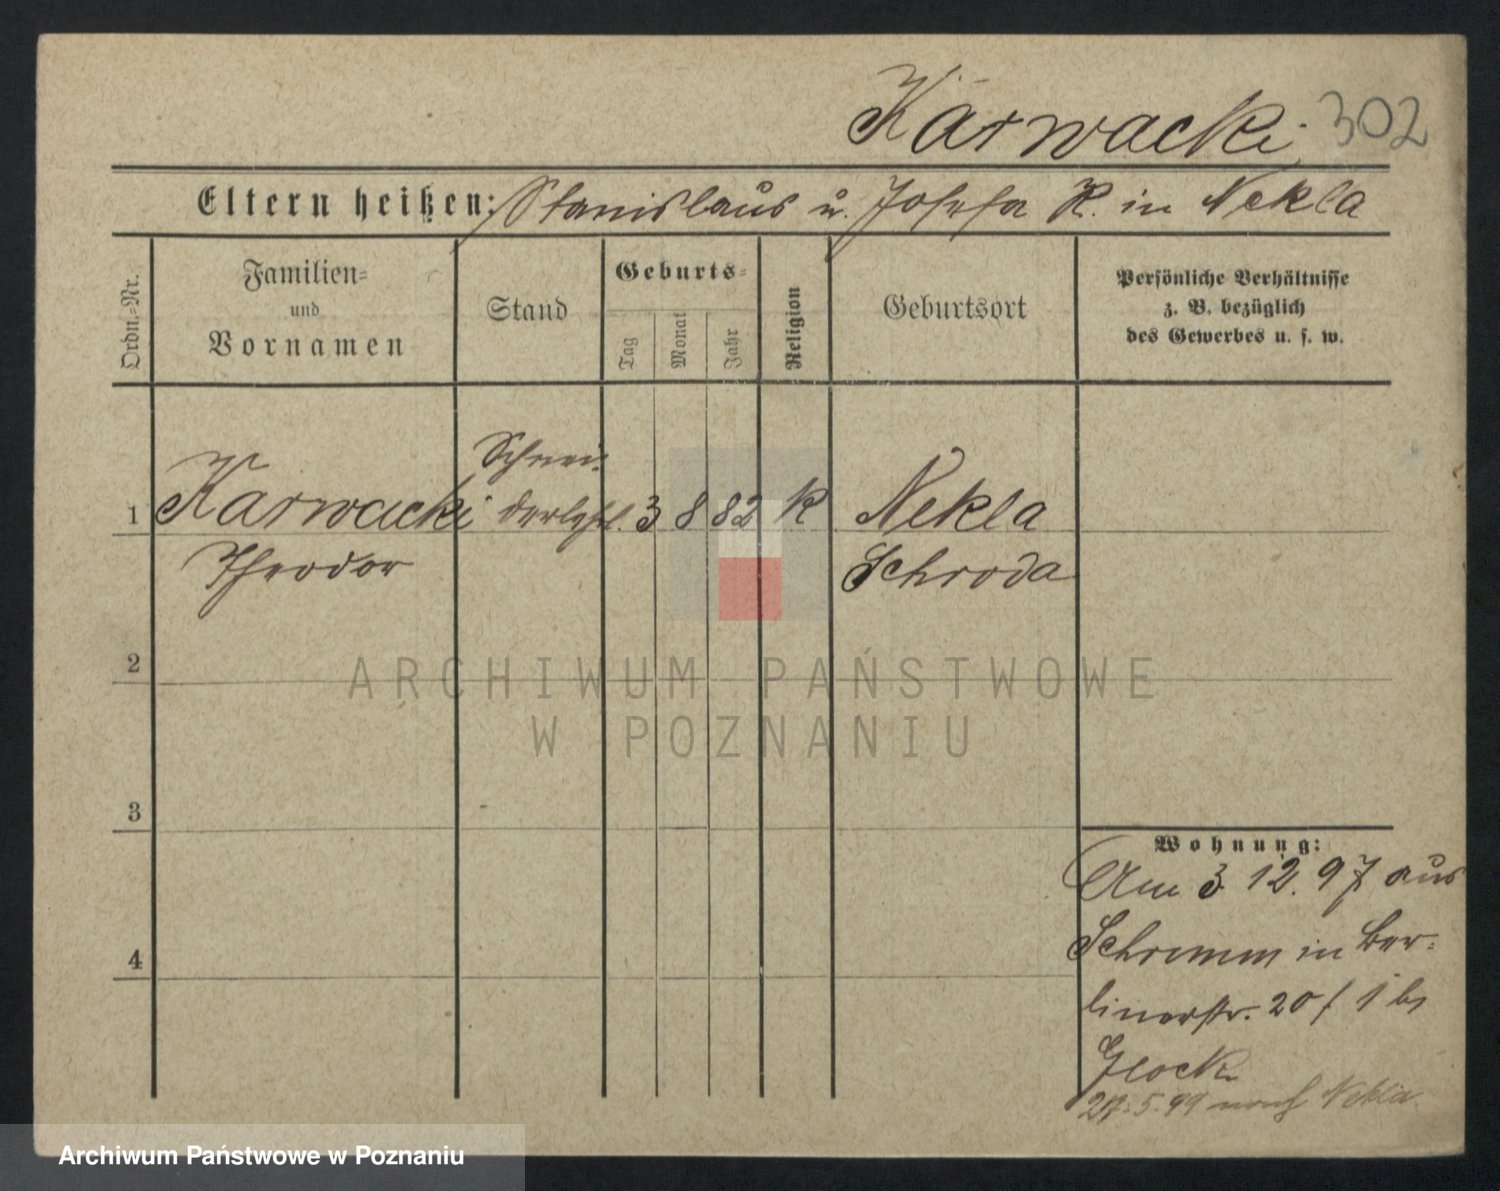 Karwacki 302
Eltern heißen: Stanislaus u. Josefa K. in Nekla
Ordn.-Nr.
Familien-
und
Vornamen
Stand
Geburts-
Tag
Monat
Jahr
Religion
Geburtsort
Persönliche Verhältnisse
z. B. bezüglich
des Gewerbes u. s. w.
Schnei-
1 Karwacki derlehrl. 3 8 82 K Nekla
Theodor Schroda
2
ARCHIWUM PAŃSTWOWE
W POZNANIU
3
Wohnung:
Am 3. 12. 97 aus
Schrimm in Ber-
4
linerstr. 20/1 bei
Glock
27. 5. 99 nach Nekla
Archiwum Państwowe w Poznaniu